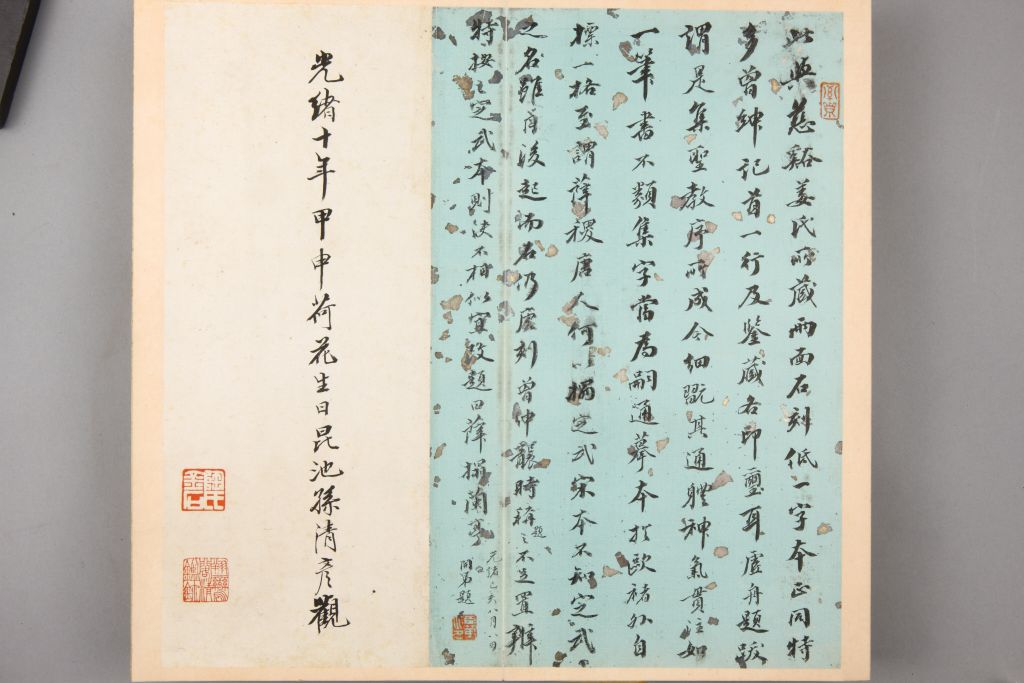 此與慈谿姜氏所藏兩面石刻低一字本正同特
多曾紳記首一行及鑒藏各印璽耳虛舟題跋
謂是集聖教序所成今細翫其通體神氣貫注如
一筆書不類集字當為嗣通摹本於歐褚外自
標一格至謂薛稷唐人何以搨定武宋本不知定武
之名雖後起而石仍唐刻曾仲龔時題稱之不足置辨
特之定武本則決不相似宜改題曰薛搨蘭亭
光緒己亥八月八日
題
光緒十年甲申荷花生日昆池孫清彥觀